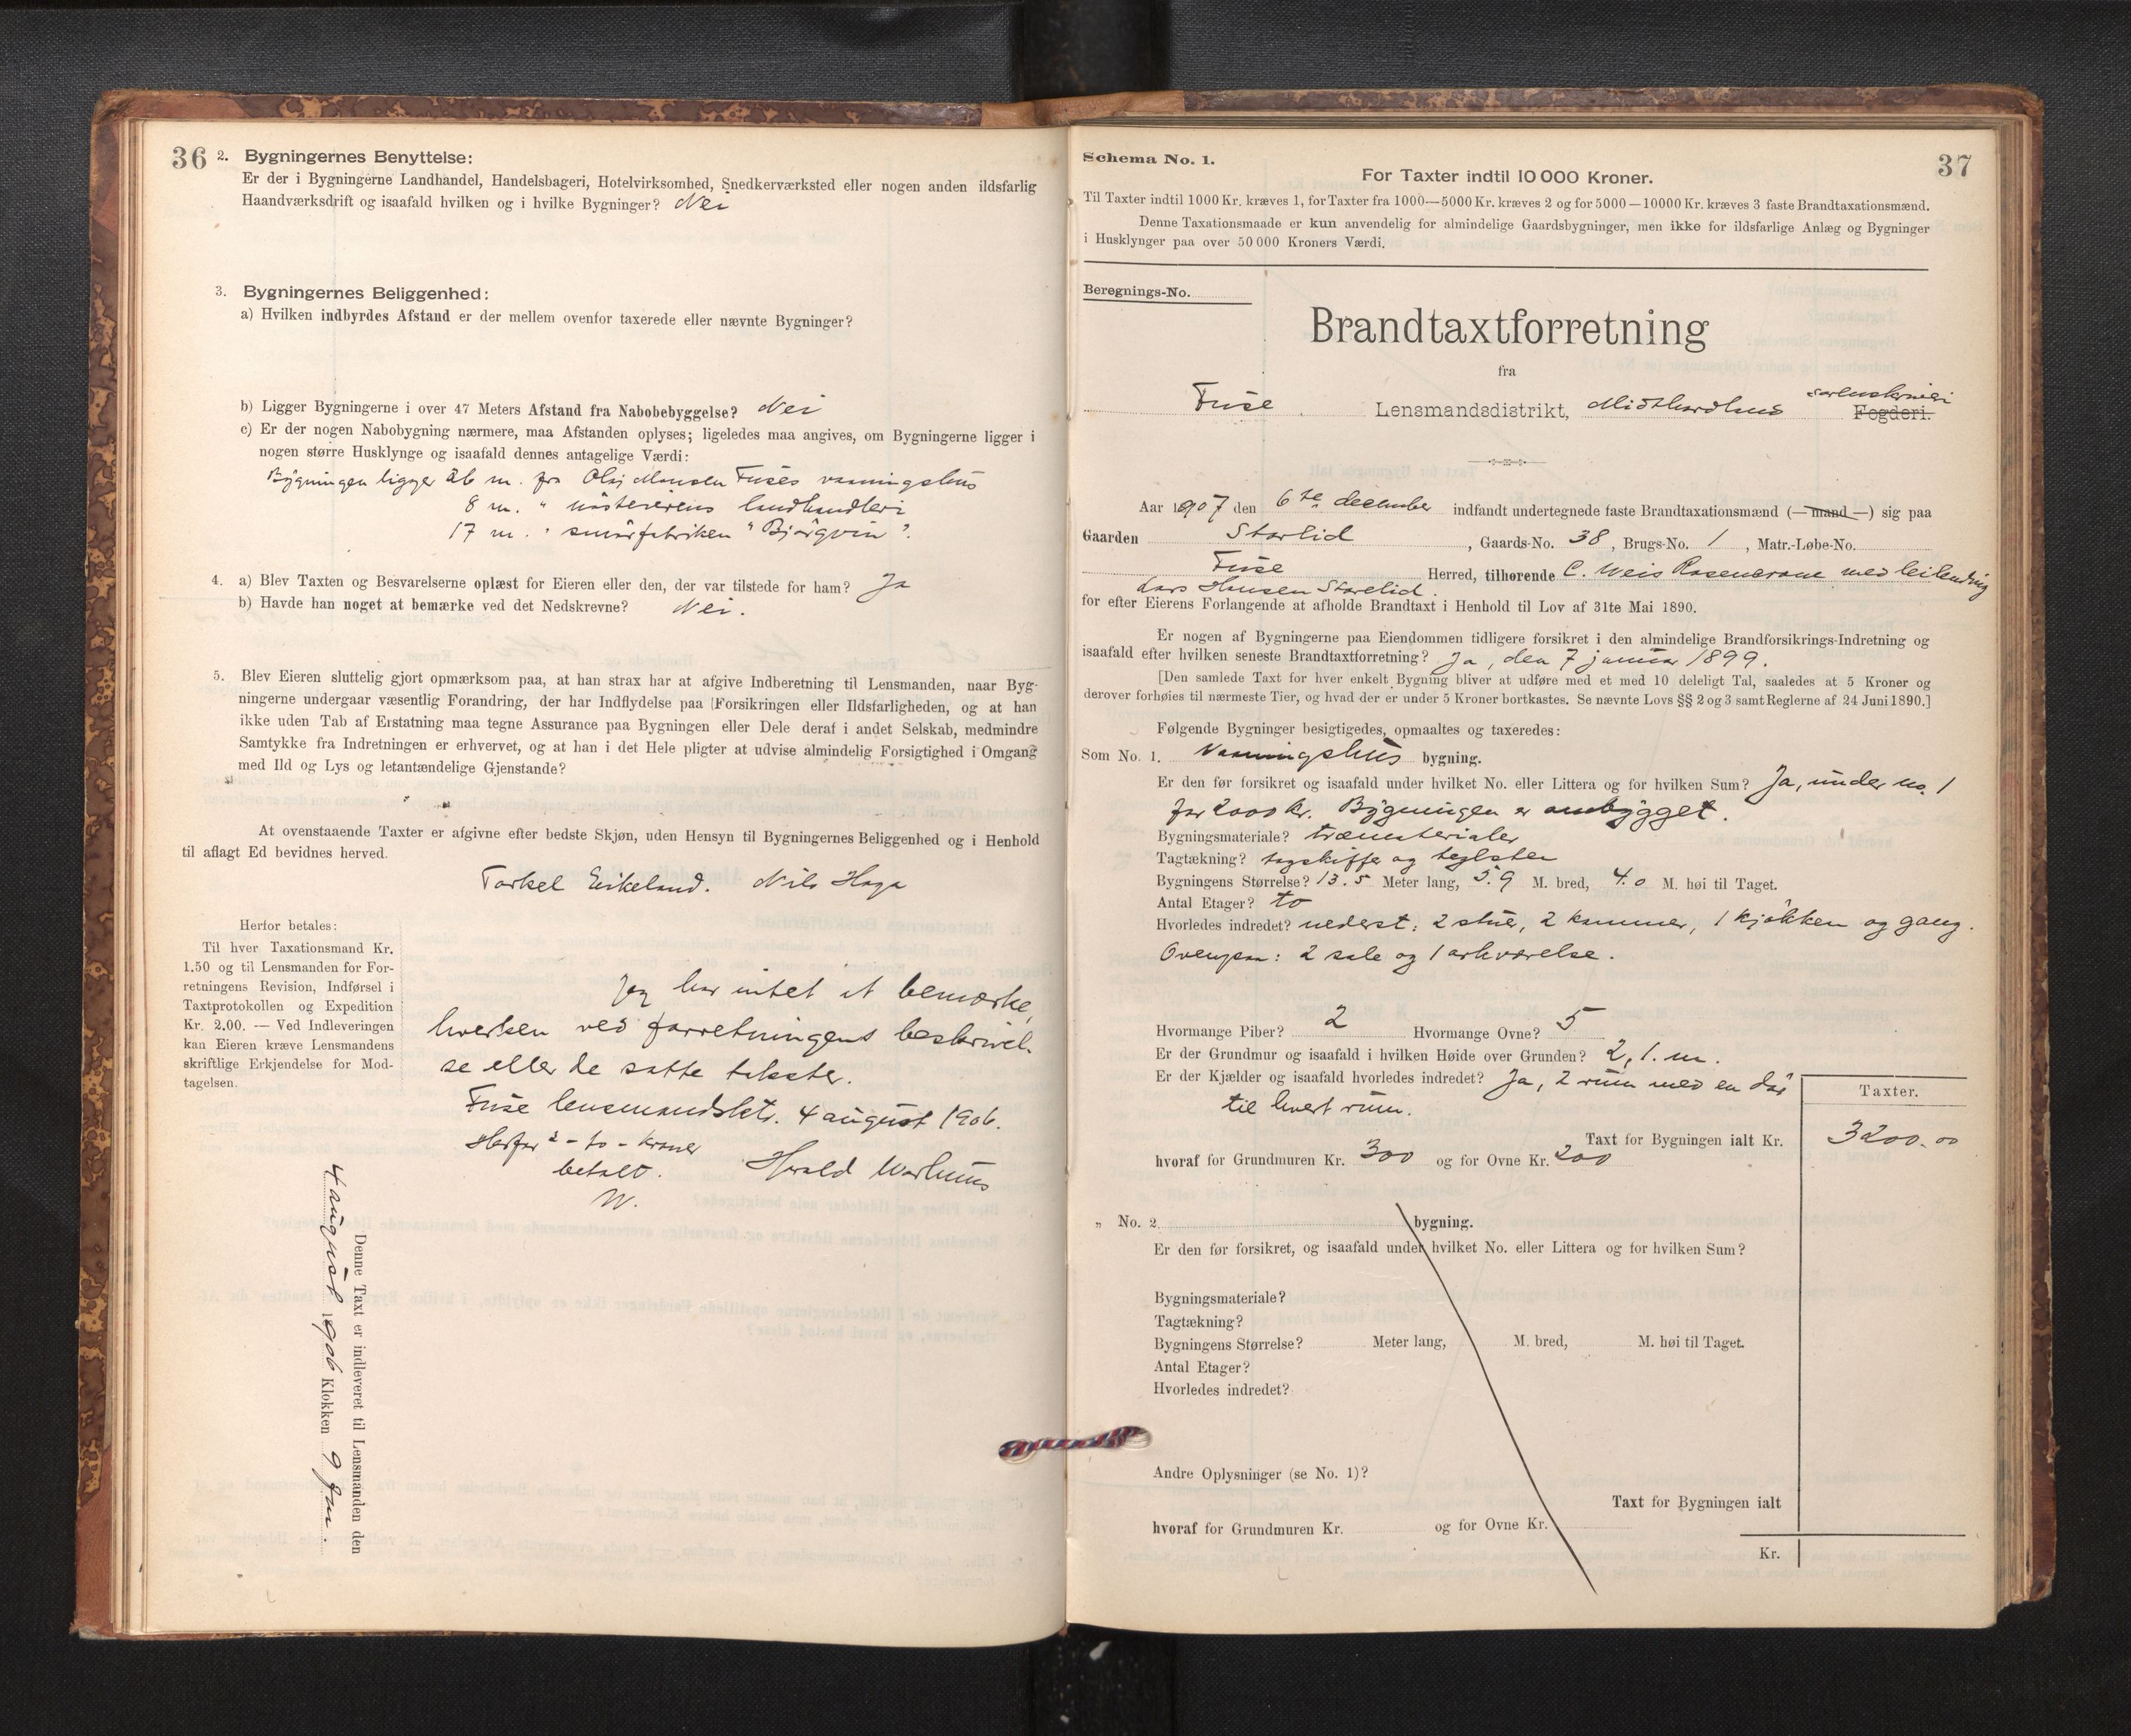 36
2. Bygningernes Benyttelse:
Er der i Bygningerne Landhandel, Handelsbageri, Hotelvirksomhed, Snedkerværksted eller nogen anden ildsfarlig
Haandværksdrift og isaafald hvilken og i hvilke Bygninger? Nei
3. Bygningernes Beliggenhed:
a) Hvilken indbyrdes Afstand er der mellem ovenfor taxerede eller nævnte Bygninger?
b) Ligger Bygningerne i over 47 Meters Afstand fra Nabobebyggelse? Nei
c) Er der nogen Nabobygning nærmere, maa Afstanden oplyses; ligeledes maa angives, om Bygningerne ligger i
nogen større Husklynge og isaafald dennes antagelige Værdi:
Bygningen ligger 26 m. fra Monsen Fuses vaaningshus
8 m. " landhandleri
17 m. " smörfabriken "Björgvin".
4. a) Blev Taxten og Besvarelserne oplæst for Eieren eller den, der var tilstede for ham? Ja
b) Havde han noget at bemærke ved det Nedskrevne? Nei.
5. Blev Eieren sluttelig gjort opmærksom paa, at han strax har at afgive Indberetning til Lensmanden, naar Byg-
ningerne undergaar væsentlig Forandring, der har Indflydelse paa Forsikringen eller Ildsfarligheden, og at han
ikke uden Tab af Erstatning maa tegne Assurance paa Bygningen eller Dele deraf i andet Selskab, medmindre
Samtykke fra Indretningen er erhvervet, og at han i det Hele pligter at udvise almindelig Forsigtighed i Omgang
med Ild og Lys og letantændelige Gjenstande?
At ovenstaaende Taxter er afgivne efter bedste Skjøn, uden Hensyn til Bygningernes Beliggenhed og i Henhold
til aflagt Ed bevidnes herved.
Torkel Eikeland. Nils Haga
Herfor betales:
Til hver Taxationsmand Kr.
1.50 og til Lensmanden for For-
retningens Revision, Indførsel i
Taxtprotokollen og Expedition
Kr. 2.00. — Ved Indleveringen
kan Eieren kræve Lensmandens
skriftlige Erkjendelse for Mod-
tagelsen.
Jeg har intet at bemærke,
hverken ved forretningens beskrivel-
se eller de satte takster.
Fuse lensmandskt. 4 august 1906.
Herfor 2 - to - kroner
betalt. Harald Warhuus
W.
Denne Taxt er indleveret til Lensmanden den
4 august 1906 Klokken 9 fm.
37
Schema No. 1.
For Taxter indtil 10 000 Kroner.
Til Taxter indtil 1000 Kr. kræves 1, for Taxter fra 1000—5000 Kr. kræves 2 og for 5000—10000 Kr. kræves 3 faste Brandtaxationsmænd.
Denne Taxationsmaade er kun anvendelig for almindelige Gaardsbygninger, men ikke for ildsfarlige Anlæg og Bygninger
i Husklynger paa over 50 000 Kroners Værdi.
Beregnings-No.
Brandtaxtforretning
fra
Fuse Lensmandsdistrikt, Midthordlens sorenskriveri Fogderi.
Aar 1907 den 6te december indfandt undertegnede faste Brandtaxationsmænd (—mand—) sig paa
Gaarden Storlid, Gaards-No. 38, Brugs-No. 1, Matr.-Løbe-No.
Fuse Herred, tilhørende C. Weis Rosenkrone med leilending
Lars Hansen Storelid.
for efter Eierens Forlangende at afholde Brandtaxt i Henhold til Lov af 31te Mai 1890.
Er nogen af Bygningerne paa Eiendommen tidligere forsikret i den almindelige Brandforsikrings-Indretning og
isaafald efter hvilken seneste Brandtaxtforretning? Ja, den 7 januar 1899.
[Den samlede Taxt for hver enkelt Bygning bliver at udføre med et med 10 deleligt Tal, saaledes at 5 Kroner og
derover forhøies til nærmeste Tier, og hvad der er under 5 Kroner bortkastes. Se nævnte Lovs §§ 2 og 3 samt Reglerne af 24 Juni 1890.]
Følgende Bygninger besigtigedes, opmaaltes og taxeredes:
Som No. 1. Vaaningshus bygning.
Er den før forsikret og isaafald under hvilket No. eller Littera og for hvilken Sum? Ja, under no. 1
for 2000 kr. Bygningen er ombygget.
Bygningsmateriale? træmaterialer
Tagtækning? tagskiffer og teglsten
Bygningens Størrelse? 13.5 Meter lang, 5.9 M. bred, 4.0 M. høi til Taget.
Antal Etager? to
Hvorledes indredet? nederst: 2 stuer, 2 kammer, 1 kjökken og gang.
Ovenpaa: 2 sale og 1 arkværelse.
Hvormange Piber? 2 Hvormange Ovne? 5
Er der Grundmur og isaafald i hvilken Høide over Grunden? 2,1. m.
Er der Kjælder og isaafald hvorledes indredet? Ja, 2 rum med en dör
til hvert rum.
Taxter.
Taxt for Bygningen ialt Kr. 3200.00
hvoraf for Grundmuren Kr. 300 og for Ovne Kr. 200
„ No. 2 bygning.
Er den før forsikret, og isaafald under hvilket No. eller Littera og for hvilken Sum?
Bygningsmateriale?
Tagtækning?
Bygningens Størrelse? Meter lang, M. bred, M. høi til Taget.
Antal Etager?
Hvorledes indredet?
Andre Oplysninger (se No. 1)?
Taxt for Bygningen ialt
hvoraf for Grundmuren Kr. og for Ovne Kr.
Kr.